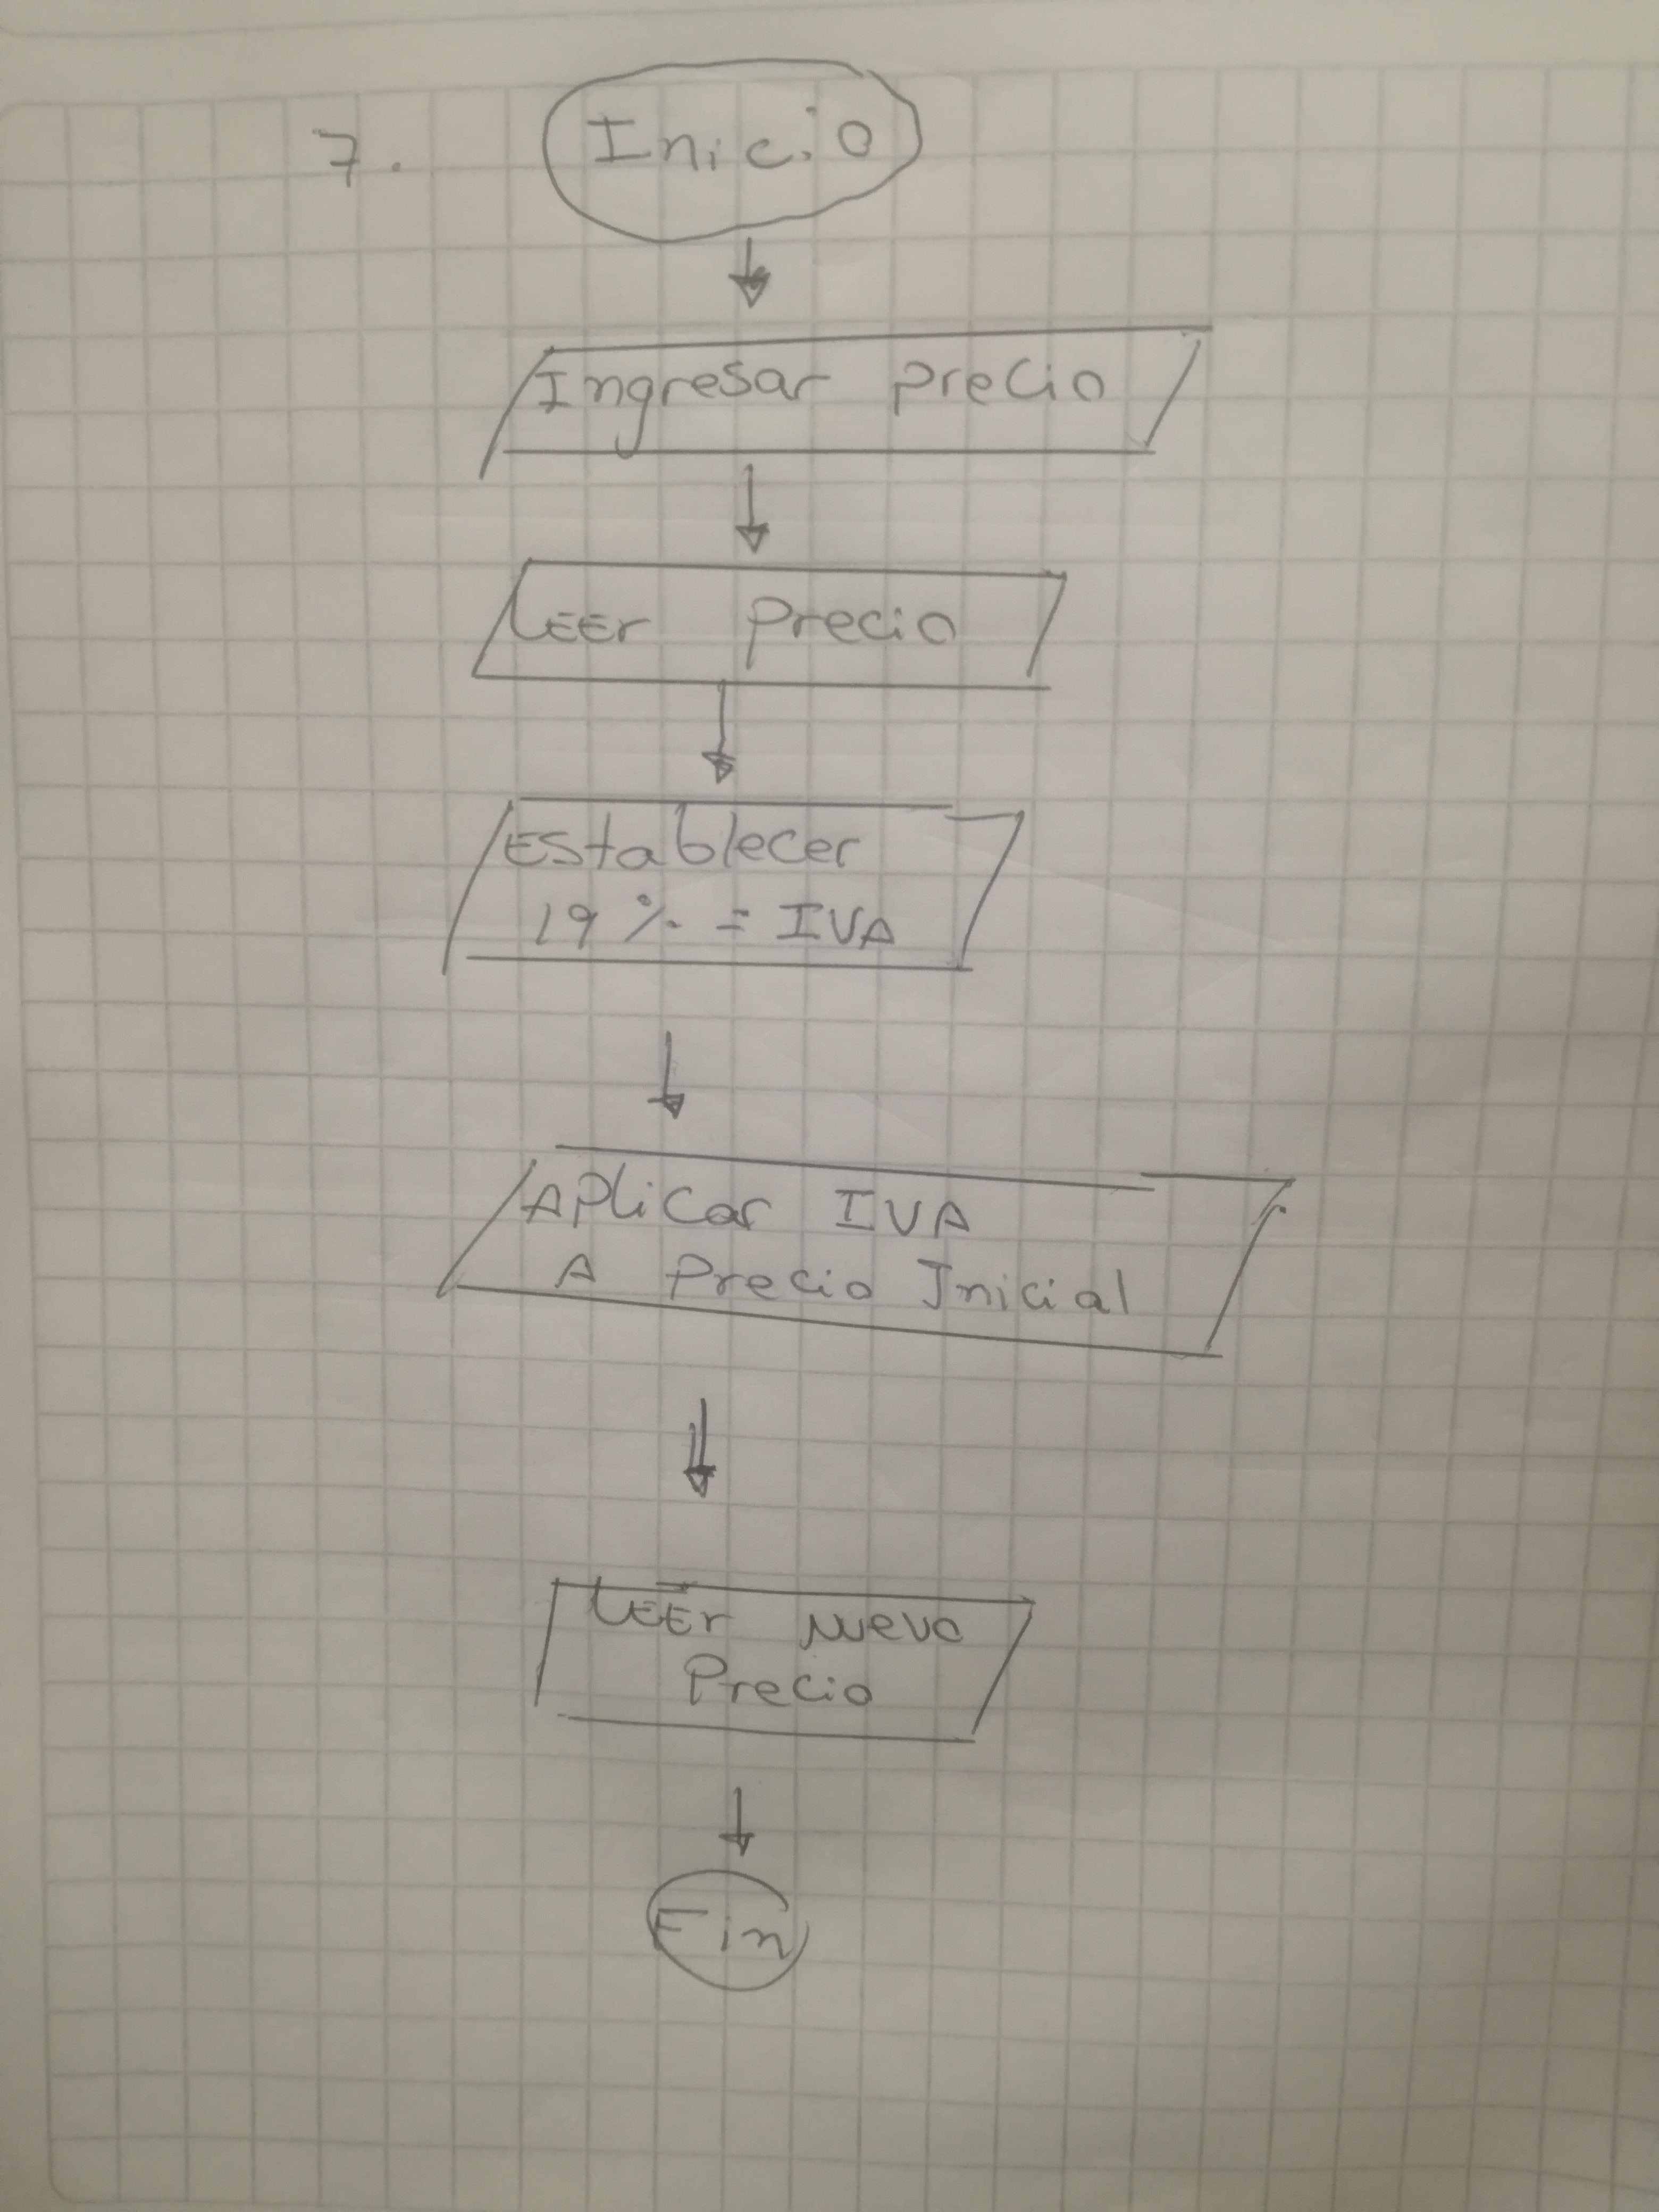 7. Inicio
Ingresar precio
LEEr precio
Establecer
19 % = IVA
Aplicar IVA
A precio Inicial
LEEr nuevo
Precio
Fin